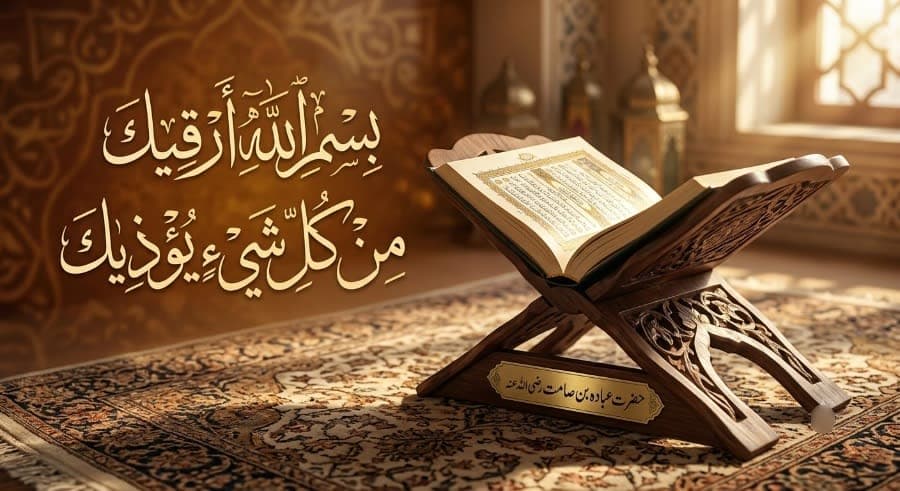 بِسْمِ اللَّهِ أَرْقِيكَ
مِنْ كُلِّ شَيْءٍ يُؤْذِيكَ
حضرت عبادہ بن صامت رضی اللہ عنہ